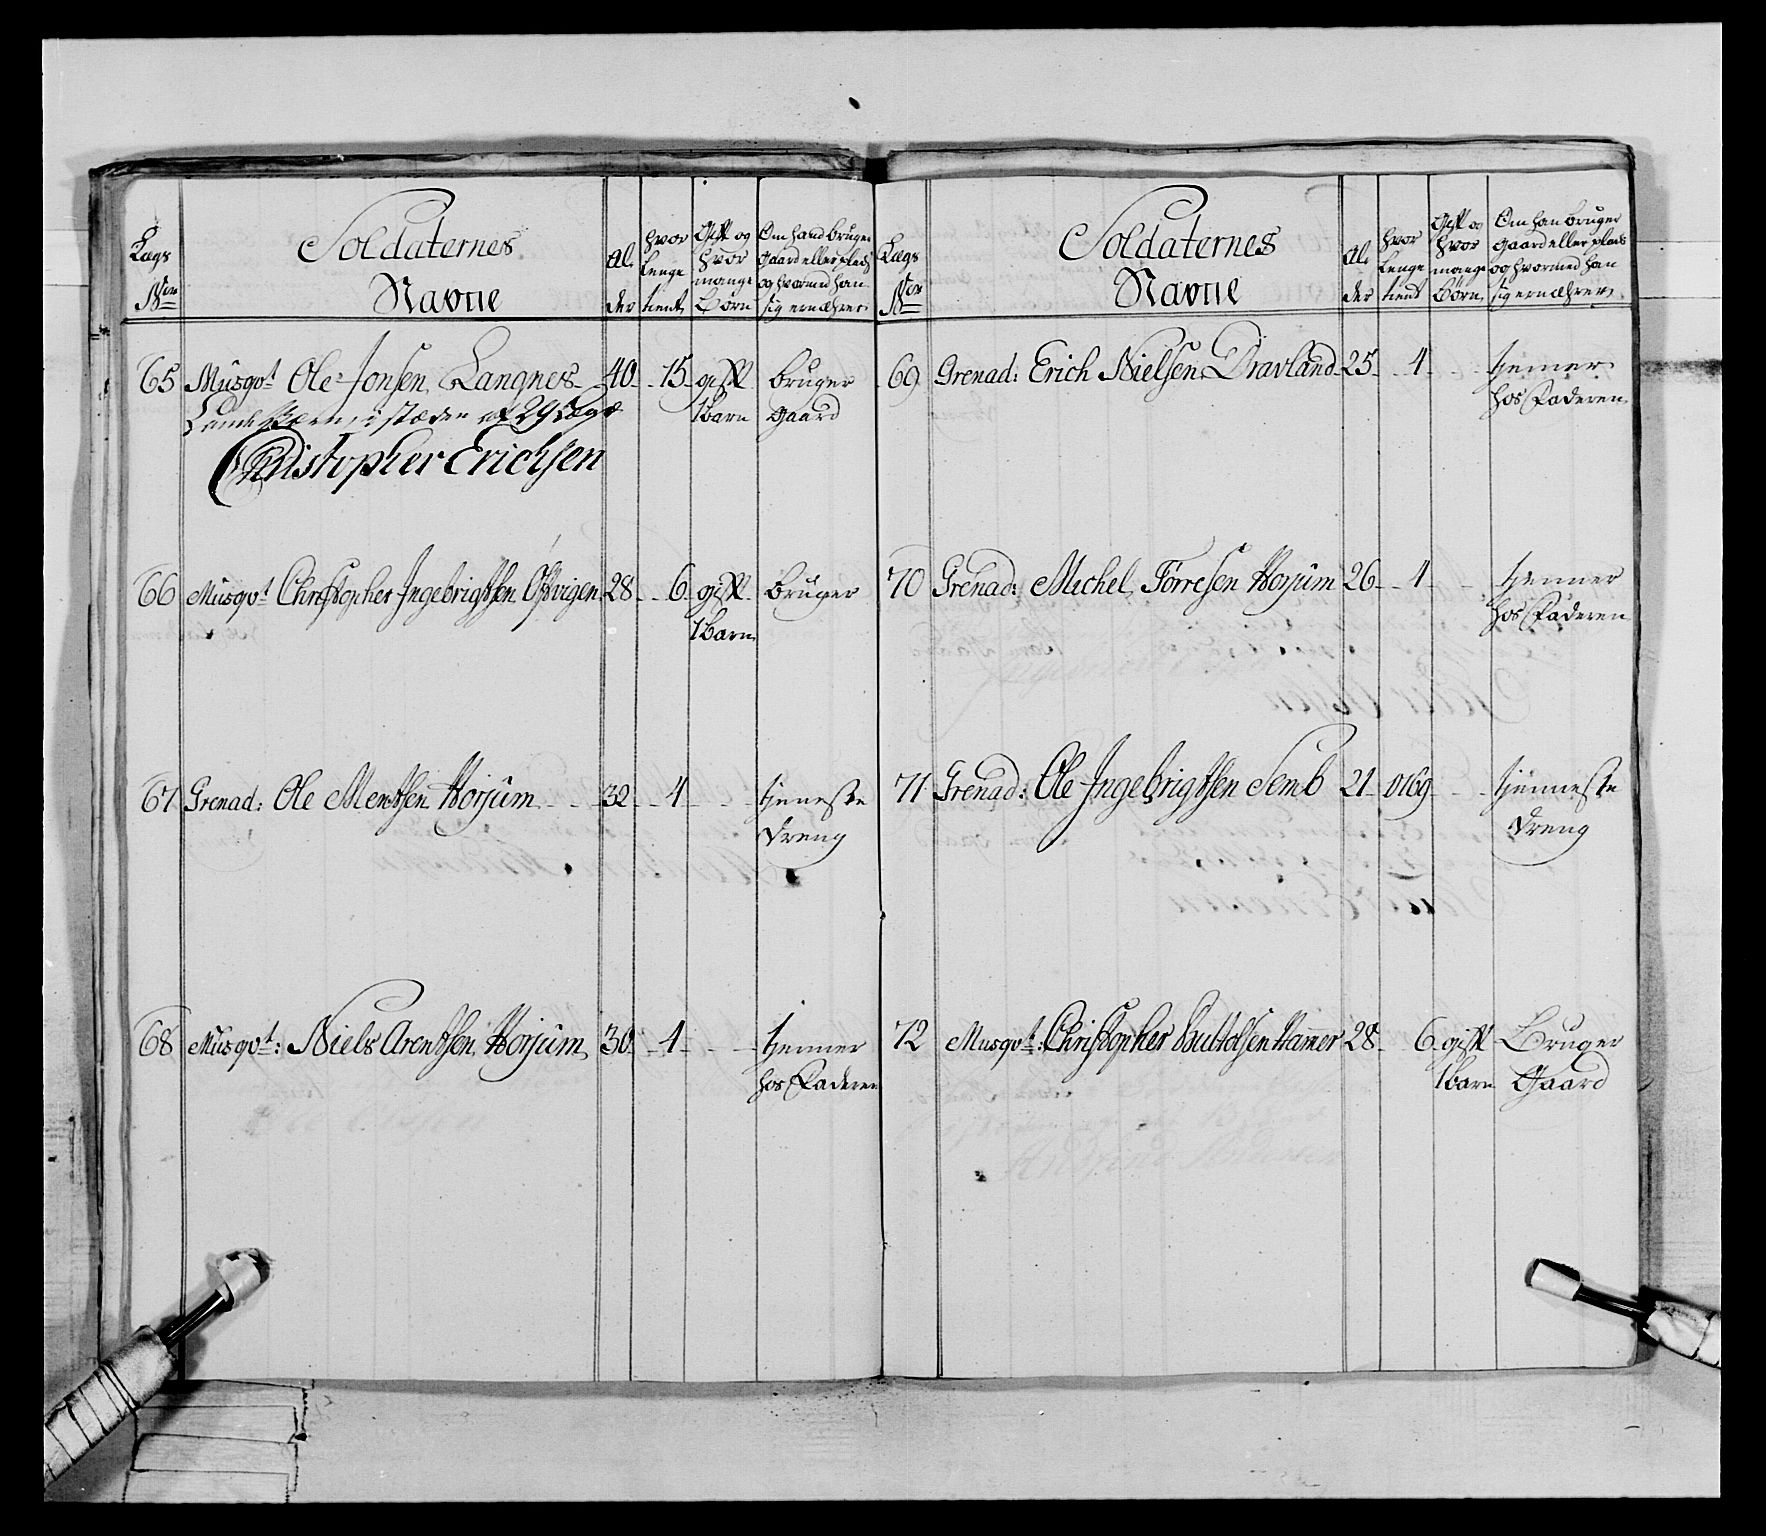 Lægs
Nor
Soldaternes
Navne
Al-
der
hvor
lenge
tient
Gift og
hvor
mange
Børn
Om hand bruger
gaard eller plads
og hvormed han
sig ernæhrer
65 Musqvt Ole Jonsen Langnes 40 15 gift bruger
1 barn gaard
i stæden af 29 Lægd
Christopher Erichsen
66 Musqvt Christopher Ingebrigtsen Østvigen 28 6 gift bruger
1 barn
67 Grenad: Ole Mentsen Horjum 32 4 tjeneste
dreng
68 Musqvt: Niels Arentsen Horjum 30 4 tjenner
hos Faderen
Lægs
Nor
Soldaternes
Navne
Al-
der
hvor
lenge
tient
Gift og
hvor
mange
Børn
Om han bruger
gaard eller plads
og hvormed han
sig ernæhrer
69 Grenad: Erich Nielsen Dravland 25 4 tjener
hos Faderen
70 Grenad: Michel Tørresen Horjum 26 4 tjenner
hos Faderen
71 Grenad: Ole Ingebrigtsen Semb 21 0169 tjenneste
dreng
72 Musqvt: Christopher Guttolsen Hamer 28 6 gift Bruger
1 barn Gaard